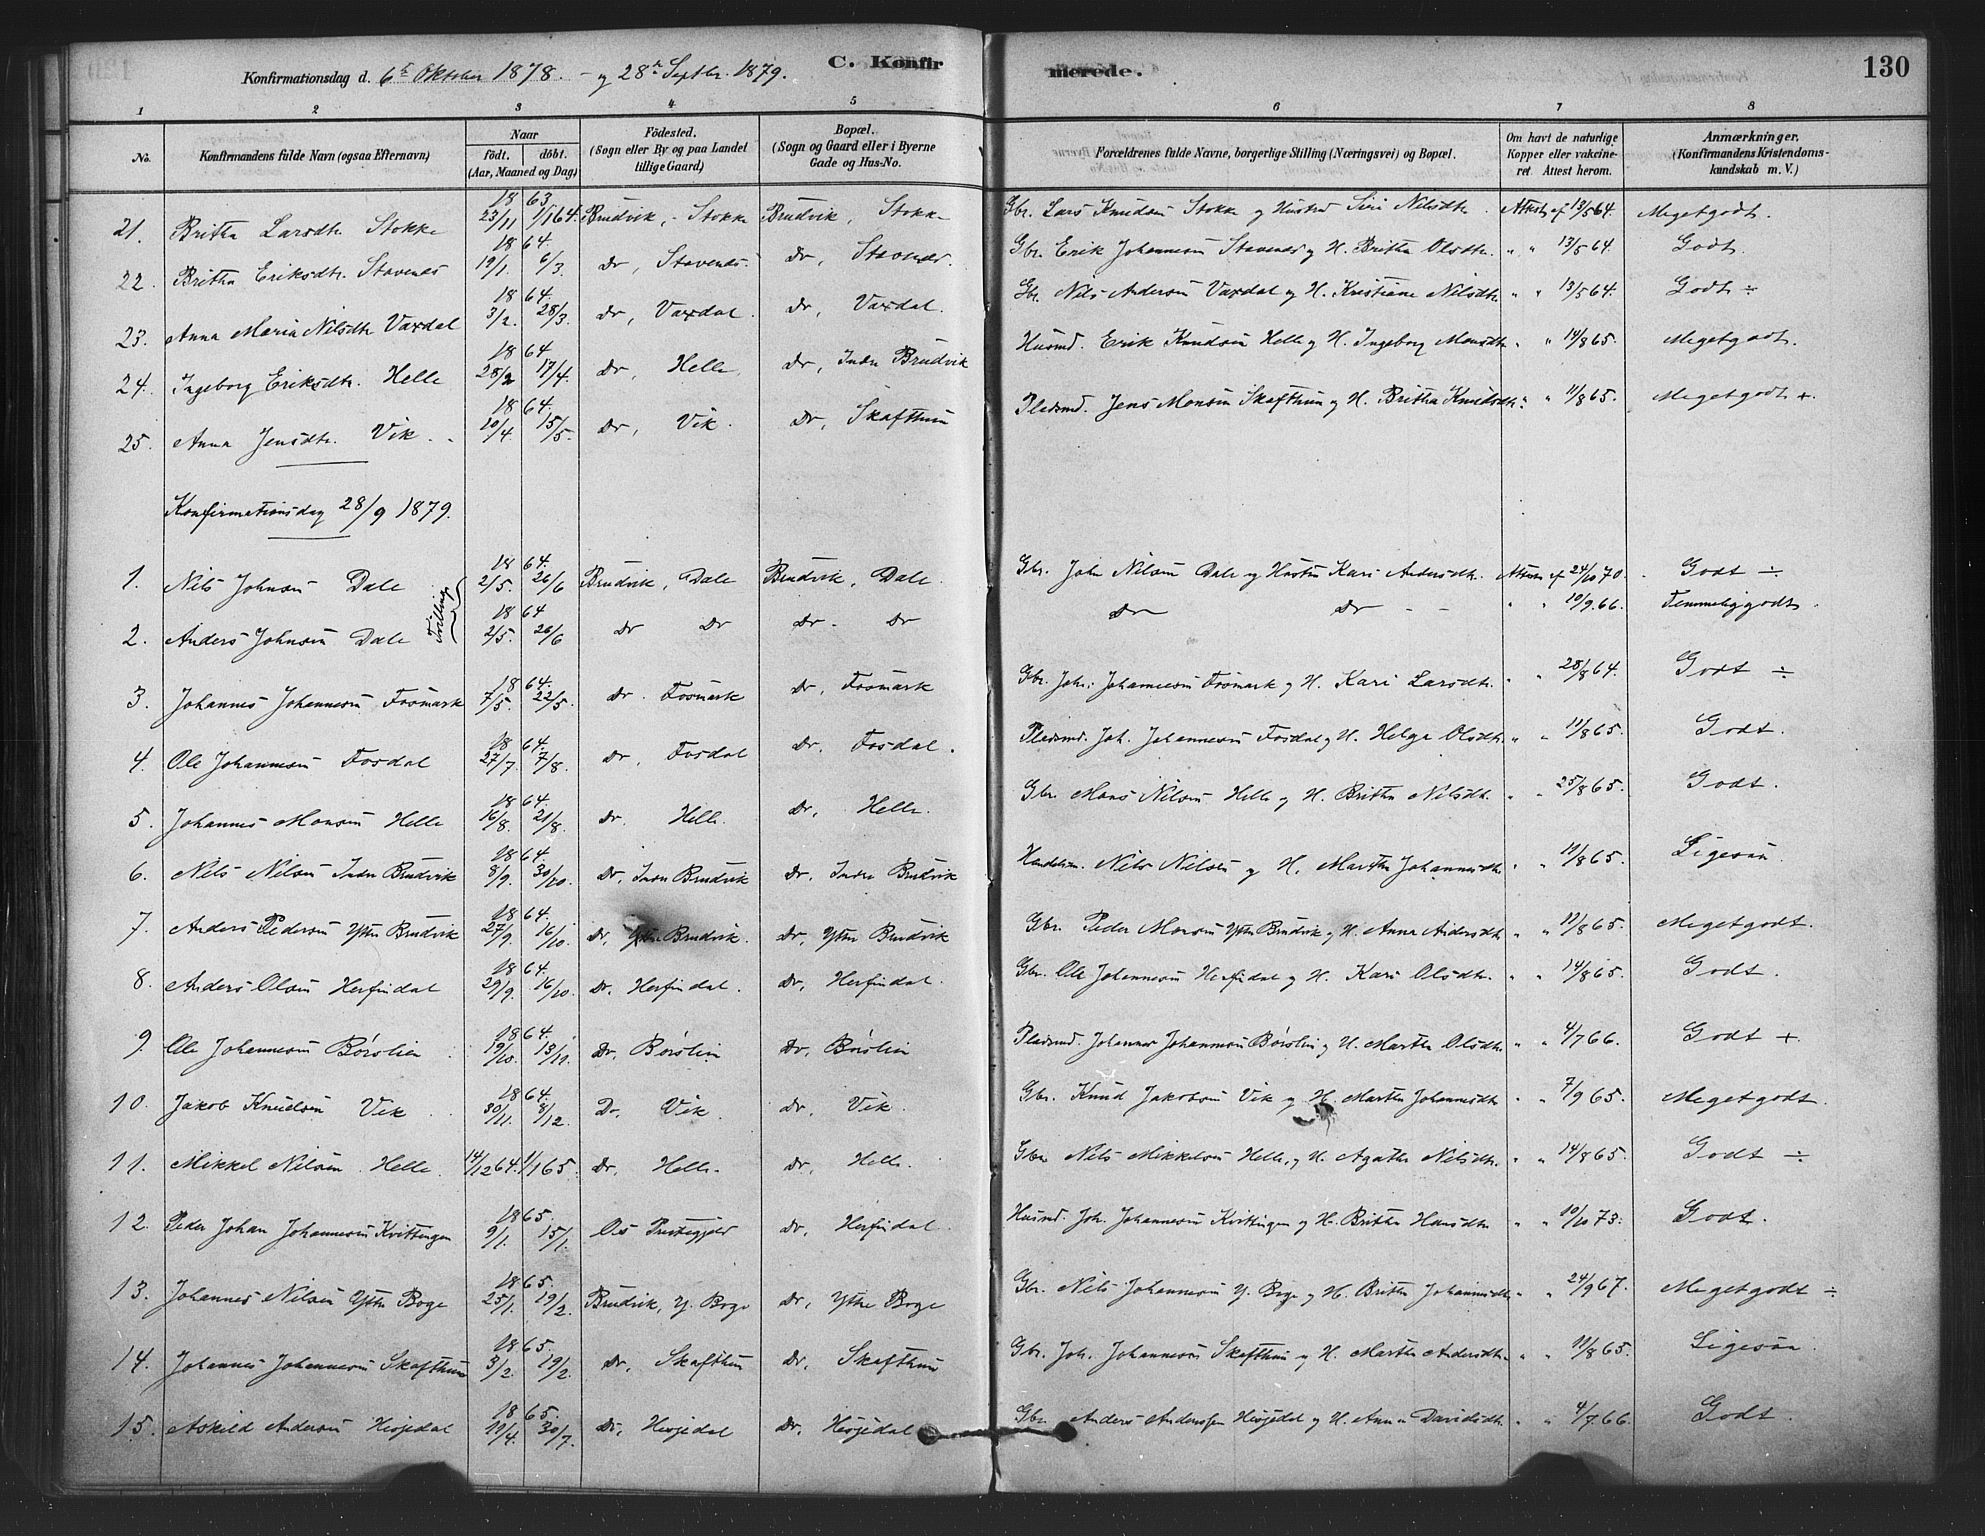 C. Konfirmerede. 130
Konfirmationsdag d. 6te Oktober 1878 - og 28de Septbr. 1879.
1 2 3 4 5 6 7 8
No. Konfirmandens fulde Navn (ogsaa Efternavn) Naar født. døbt. (Aar, Maaned og Dag) Fødested. (Sogn eller By og paa Landet tillige Gaard) Bopæl. (Sogn og Gaard eller i Byerne Gade og Hus-No. Forældrenes fulde Navne, borgerlige Stilling (Næringsvei) og Bopæl. Om havt de naturlige Kopper eller vakcineret Attest herom. Anmærkninger. (Konfirmandens Kristendomskundskab m. V.)
21. Britha Larsdtr. Stokke 1863 23/11 1/1 64. Brudvik, - Stokke Brudvik, Stokke Gbr. Lars Knudsen Stokke og Hustru Siri Nilsdtr. Attest af 13/5 64. Megetgodt.
22. Britha Eriksdtr. Stavenes 1864 19/1. 6/3. Do, Stavenes. Do, Stavenes. Gbr. Erik Johannesen Stavenes og H. Britha Olsdtr. " " 13/5 64. Godt.
23. Anna Maria Nilsdtr. Vaxdal 1864. 3/2. 28/3. Do, Vaxdal. Do, Vaxdal. Gbr. Nils Andersen Vaxdal og H. Kristiane Nilsdtr. " " 13/5 64. Godt ÷
24. Ingeborg Eriksdtr. Helle 1864 28/2 17/4. Do, Helle, Do, Indre Brudvik Husmd. Erik Knudsen Helle og H. Ingeborg Monsdtr " " 14/8 65. Megetgodt.
25. Anna Jensdtr. Vik. 1864. 20/4 15/5. Do, Vik. Do, Skafthun Pladsmd. Jens Monsen Skafthun og H. Britha Knudsdtr. " " 11/8 65. Megetgodt +.
Konfirmationsdag 28/9 1879.
1. Nils Johnsen Dale 1864. 2/5. 26/6 Brudvik, Dale Brudvik, Dale. Gbr. John Nilsen Dale og Hustru Kari Andersdtr. Attest af 24/10 70. Godt ÷.
Tvillinger
2. Anders Johnsen Dale 1864 2/5. 26/6 Do Do Do - Do Do Do - - " " 10/9 66. Temmeliggodt.
3. Johannes Johannesen Fosmark 1864. 7/5. 22/5. Do. Fosmark Do, Fosmark Gbr. Joh. Johannesen Fosmark og H. Kari Larsdtr. " " 28/8 64. Godt ÷
4. Ole Johannesen Fosdal 1864. 27/7. 7/8. Do, Fosdal Do. Fosdal. Pladsmd. Joh. Johannesen Fosdal og H. Helga Olsdtr " " 11/8 65. Godt.
5. Johannes Monsen Helle 1864. 16/8. 21/8. Do. Helle. Do, Helle. Gbr. Mons Nilsen Helle og H. Britha Nilsdtr. " " 25/8 65. Godt.
6. Nils Nilsen Indre Brudvik 1864. 8/9. 30/10. Do, Indre Brudvik Do. Indre Brudvik Nils Nilsen og H. Martha Johannesdtr " " 11/8 65. Ligesaa.
7. Anders Pedersen Ytre Brudvik 1864. 27/9. 16/10. Do, Ytre Brudvik. Do, Ytre Brudvik Gbr. Peder Monsen Ytre Brudvik og H. Anna Andersdtr " " 11/8 65. Megetgodt.
8. Anders Olsen Herfindal 1864. 29/9. 16/10. Do. Herfindal. Do, Herfindal. Gbr. Ole Johannesen Herfindal og H. Kari Olsdtr. " " 14/8 65. Godt.
9. Ole Johannesen Børslien 1864. 19/10. 13/11. Do, Børslien Do. Børslien Pladsmd. Johannes Johannesen Børslien og H. Martha Olsdtr " " 4/7 66. Godt +.
10. Jakob Knudsen Vik 1864. 30/11. 8/12. Do. Vik. Do, Vik. Gbr. Knud Jakobsen Vik og H. Martha Johannesdtr " " 7/9 65. Megetgodt.
11. Mikkel Nilsen Helle. 14/12 64. 1/1 65. Do, Helle. Do, Helle. Gbr Nils Mikkelsen Helle, og H. Agatha Nilsdtr. " " 14/8 65. Godt ÷
12. Peder Johan Johannesen Kvittingen 1865. 9/1. 15/1. Os Prestegjeld Do, Herfindal. Husmd. Joh. Johannesen Kvittingen og H. Britha Hansdtr " " 10/10 73. Godt.
13. Johannes Nilsen Ytre Boge 1865. 25/1. 19/2. Brudvik, Y. Boge Do, Ytre Boge Gbr. Nils Johannesen Y. Boge og H. Britha Johannesdtr " " 24/9 67. Megetgodt ÷
14. Johannes Johannesen Skafthun 1865. 3/2. 19/2. Do, Skafthun Do. Skafthun Gbr. Joh. Johannesen Skafthun og H. Martha Andersdtr. " " 11/8 65. Ligesaa.
15. Askild Andersen Hesjedal 1865. 19/4. 30/7. Do, Hesjedal Do. Hesjedal Gbr. Anders Andersen Hesjedal og H. Anna Davidsdtr. " " 4/7 66. Godt.